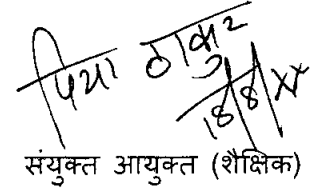 पिया ठाकुर
18/8/
संयुक्त आयुक्त (शैक्षिक)